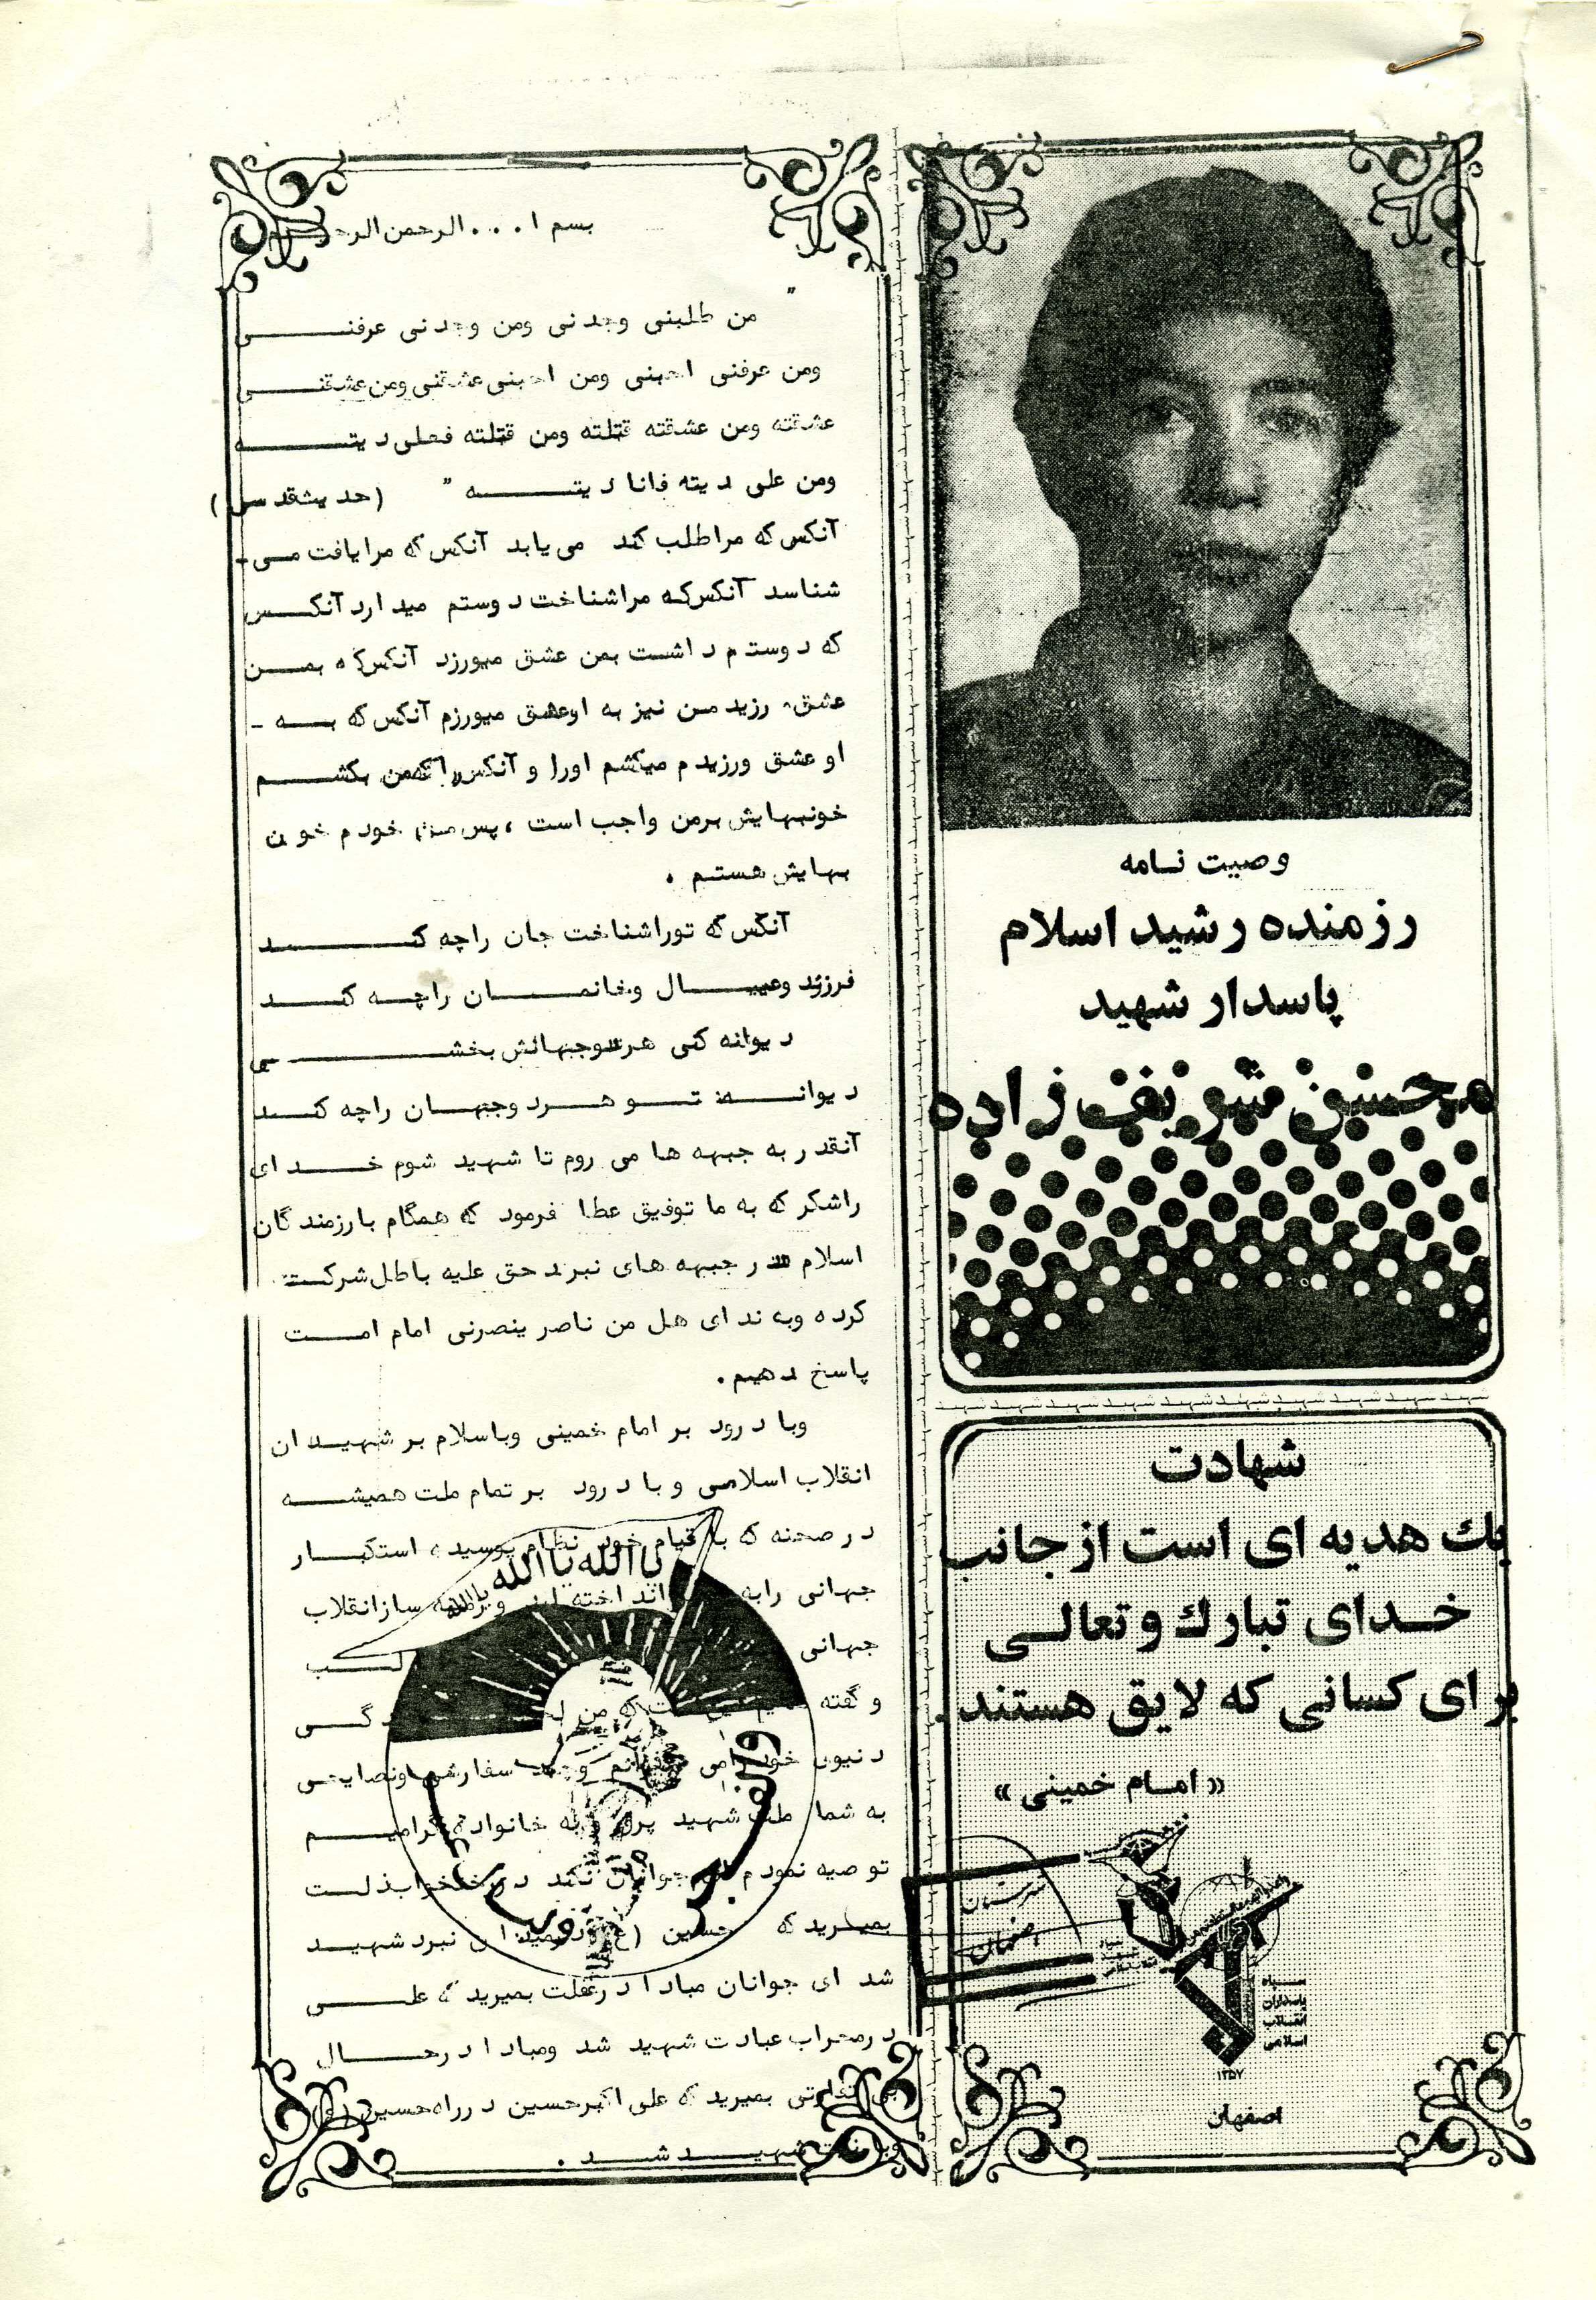 وصیت نامه
رزمنده رشید اسلام
پاسدار شهید
محسن شریف زاده
شهادت
یك هدیه ای است از جانب
خدای تبارك و تعالی
برای کسانی که لایق هستند.
«امام خمینی»
سپاه
پاسداران
انقلاب
اسلامی
۱۳۵۷
اصفهان
بسم ا... الرحمن الرحیم
" من طلبنی وجدنی ومن وجدنی عرفنی
ومن عرفنی احبنی ومن احبنی عشقنی ومن عشقنی
عشقته ومن عشقته قتلته ومن قتلته فعلی دیته
ومن علی دیته فانا دیته " (حدیث قدسی)
آنکس که مرا طلب کند می یابد آنکس که مرا یافت می-
شناسد آنکس که مرا شناخت دوستم میدارد آنکس
که دوستم داشت بمن عشق میورزد آنکس که بمن
عشق ورزید من نیز به او عشق میورزم آنکس که به -
او عشق ورزیدم میکشم اورا و آنکس را که من بکشم
خونبهایش برمن واجب است ، پس من خودم خون
بهایش هستم .
آنکس که تورا شناخت جان راچه کند
فرزند وعیال وخانمان راچه کند
دیوانه کنی هردو جهانش بخشی
دیوانه تو هردو جهان راچه کند
آنقدر به جبهه ها می روم تا شهید شوم خدای
راشکر که به ما توفیق عطا فرمود که همگام بارزمندگان
اسلام در جبهه های نبرد حق علیه باطل شرکت
کرده وبه ندای هل من ناصر ینصرنی امام امت
پاسخ دهیم .
وبا درود بر امام خمینی وباسلام بر شهیدان
انقلاب اسلامی و با درود بر تمام ملت همیشه
در صحنه که با قیام خود نظام پوسیده استکبار
جهانی رابه انداخته اند و زمینه سازانقلاب
جهانی
و گفته که من
دنیوی خود سفارش ونصایحی
به شما ملت شهید پرور و به خانواده گرامیم
توصیه نمودم ای جوانان نکند در رختخواب ذلت
بمیرید که حسین (ع) در میدان نبرد شهید
شد ای جوانان مبادا درغفلت بمیرید که علی
درمحراب عبادت شهید شد ومبادا درحال
بی تفاوتی بمیرید که علی اکبرحسین درراه حسین
شهید شد .
یا الله یا الله یا الله